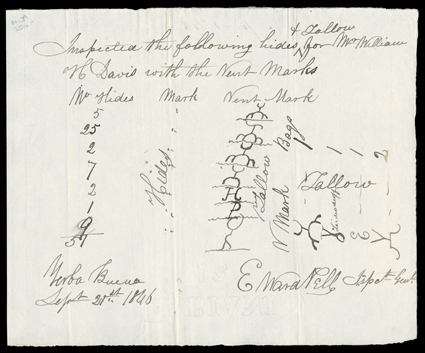 Inspected the following hides & Tallow for Mr William
H Davis with the Vent Marks
No Hides Mark Vent Mark
5
25
2
7
2
1
9
51
Hides
Tallow
Bags
N Mark
Tallow
1
1
2
Yerba Buena
Sept 21st 1846
E Ward Pell Inspct Genl.